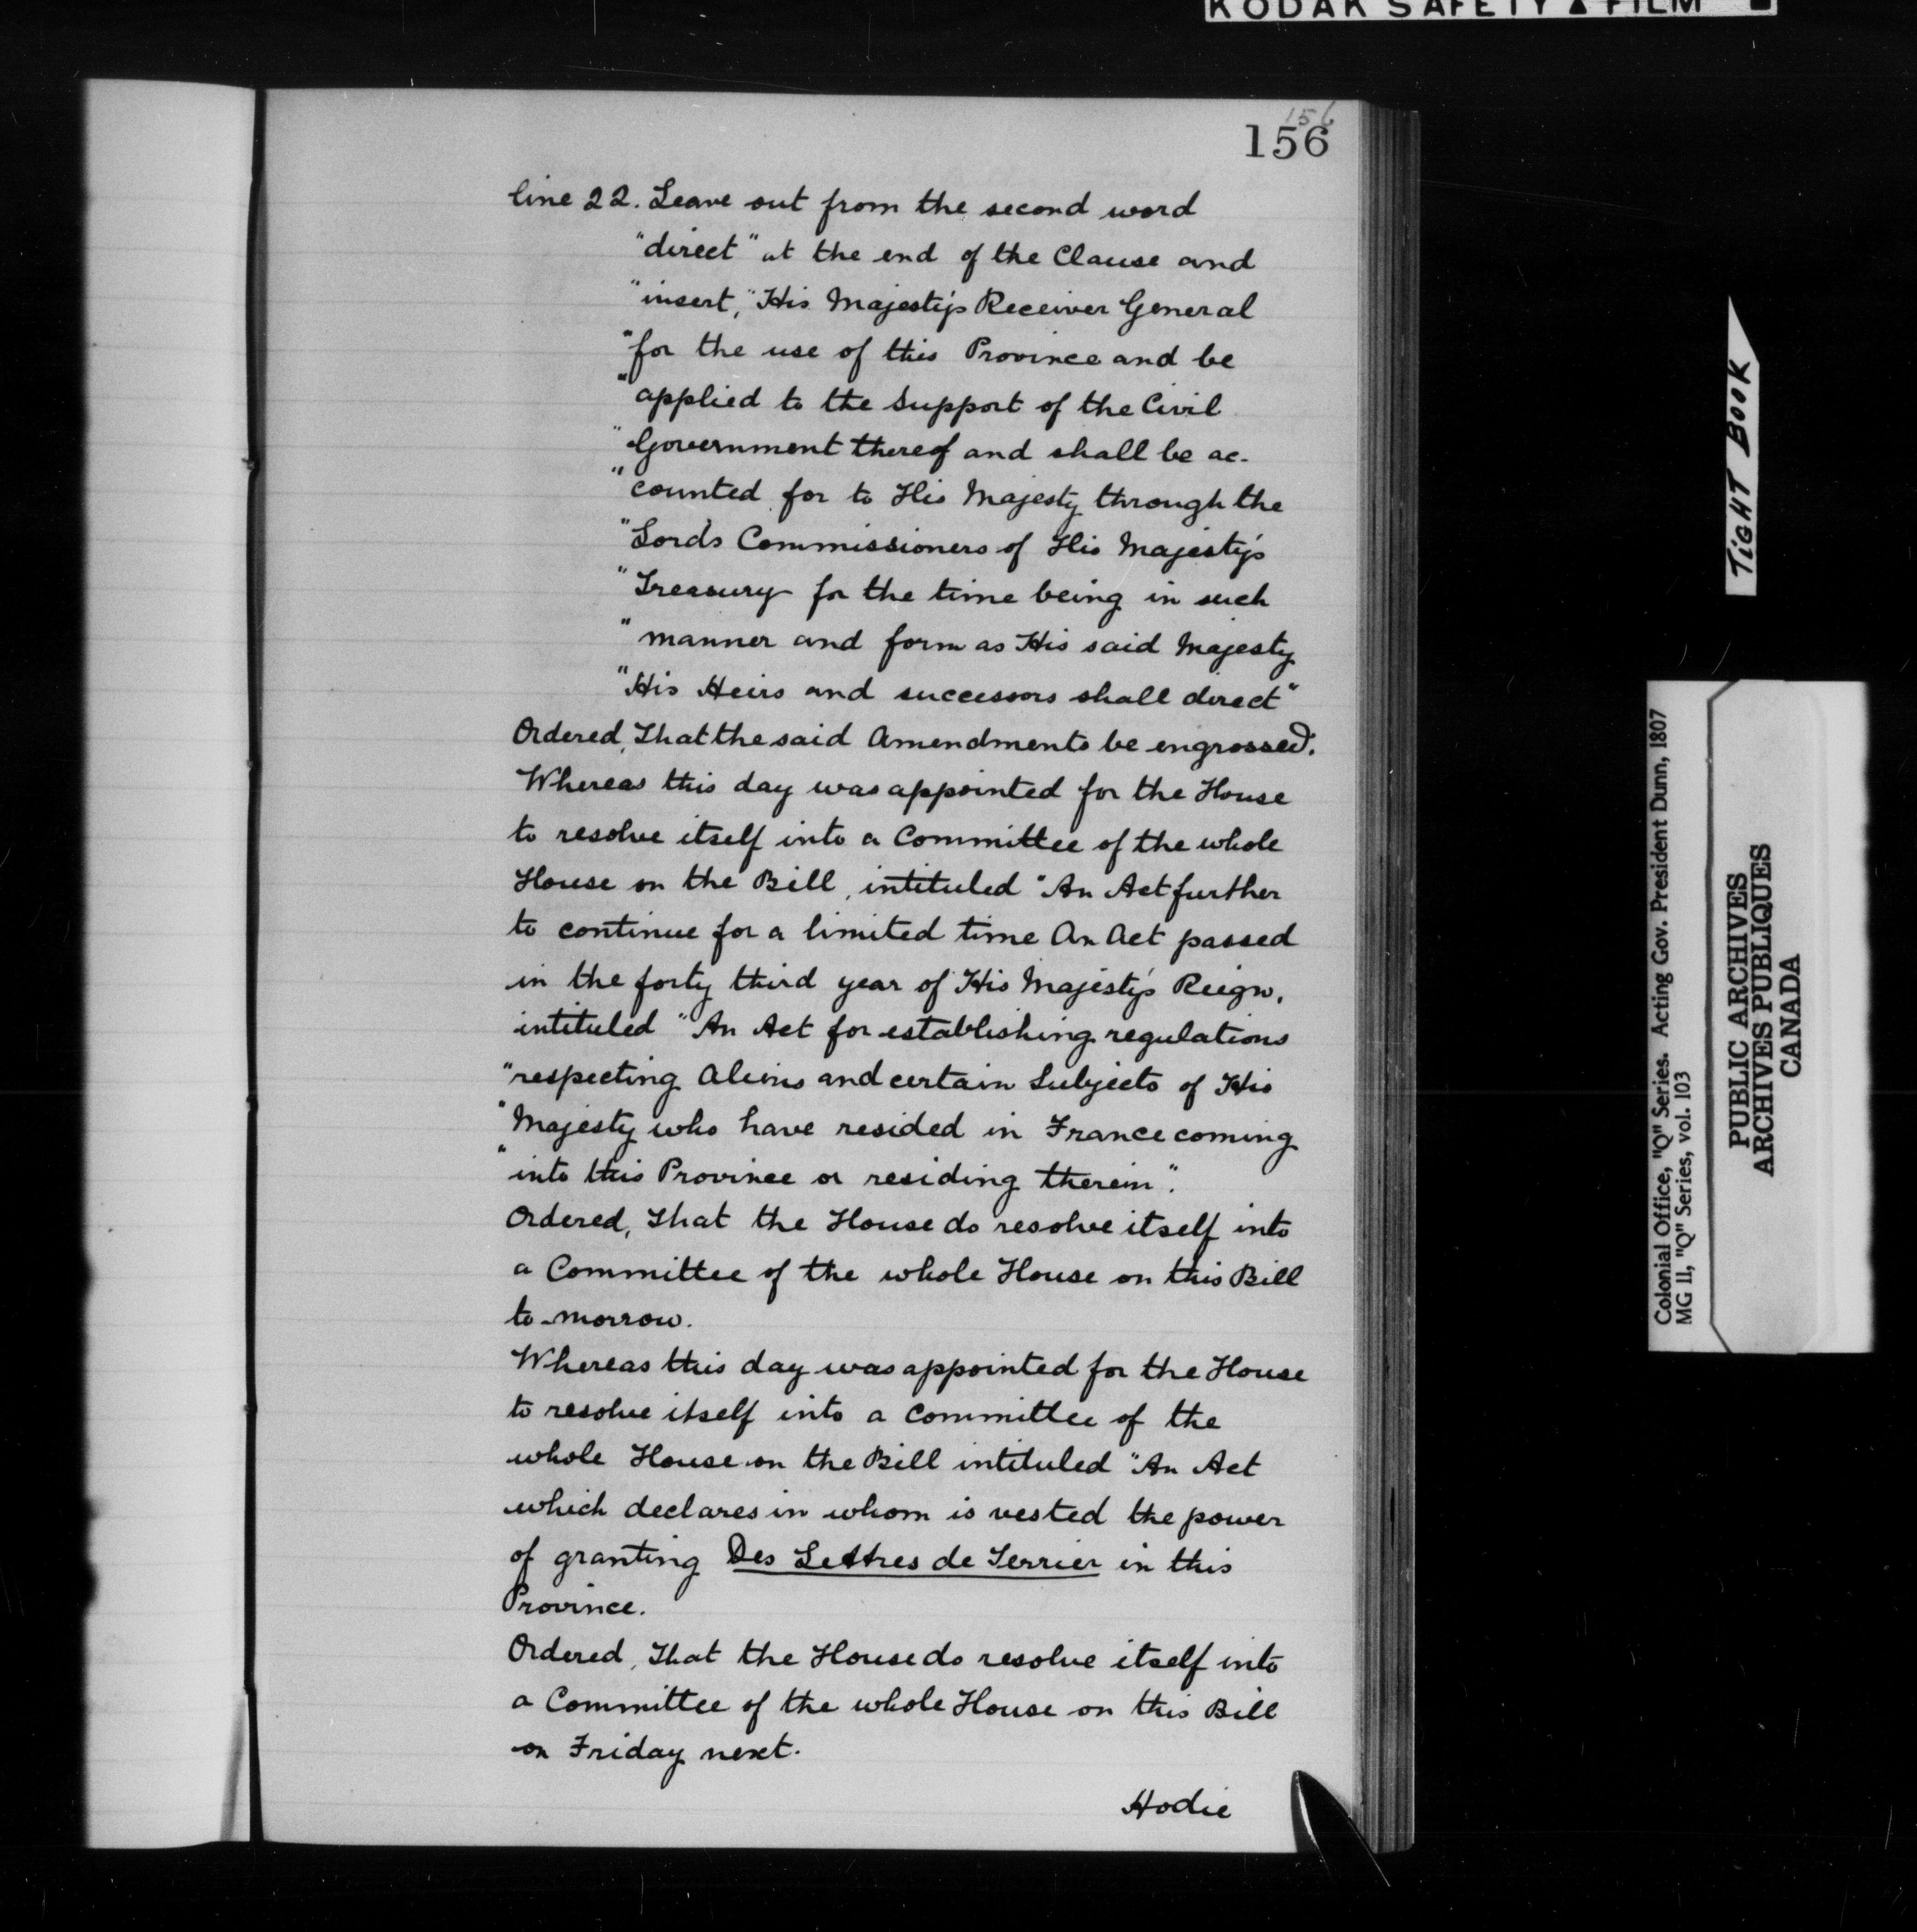 KODAK SAFETY ▲ FILM
156
156
line 22. Leave out from the second word
"direct" at the end of the Clause and
"insert," His Majesty's Receiver General
"for the use of this Province and be
"applied to the Support of the Civil
"Government thereof and shall be ac-
"counted for to His Majesty through the
"Lords Commissioners of His Majesty's
"Treasury for the time being in such
"manner and form as His said Majesty
"His Heirs and successors shall direct"
Ordered, That the said Amendments be engrossed.
Whereas this day was appointed for the House
to resolve itself into a Committee of the whole
House on the Bill, intituled "An Act further
to continue for a limited time An Act passed
in the forty third year of His Majesty's Reign,
intituled "An Act for establishing regulations
"respecting Aliens and certain Subjects of His
"Majesty who have resided in France coming
"into this Province or residing therein".
Ordered, That the House do resolve itself into
a Committee of the whole House on this Bill
to-morrow.
Whereas this day was appointed for the House
to resolve itself into a Committee of the
whole House on the Bill intituled "An Act
which declares in whom is vested the power
of granting Des Lettres de Terrier in this
Province.
Ordered, That the House do resolve itself into
a Committee of the whole House on this Bill
on Friday next.
Hodie
TIGHT BOOK
Colonial Office, "Q" Series. Acting Gov. President Dunn, 1807
MG 11, "Q" Series, vol. 103
PUBLIC ARCHIVES
ARCHIVES PUBLIQUES
CANADA